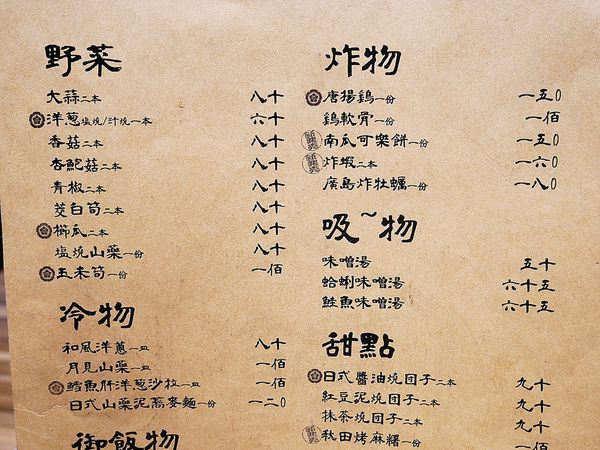 野菜
大蒜二本 八十
洋蔥塩燒/汁燒一本 六十
香菇二本 八十
杏鮑菇二本 八十
青椒二本 八十
茭白筍二本 八十
櫛瓜二本 八十
塩燒山藥一份 八十
玉米筍一份 一佰
冷物
和風洋蔥一皿 八十
月見山藥一皿 一佰
鱈魚肝洋蔥沙拉一皿 一佰
日式山藥泥蕎麥麵一份 一二0
御飯物
炸物
唐揚鷄一份 一五0
鷄軟骨一份 一佰
南瓜可樂餅一份 一五0
炸蝦二本 一六0
廣島炸牡蠣一份 一八0
吸~物
味噌湯 五十
蛤蜊味噌湯 六十五
鮭魚味噌湯 六十五
甜點
日式醬油燒団子二本 九十
紅豆泥燒団子二本 九十
抹茶燒団子二本 九十
秋田烤麻糬一份 一佰